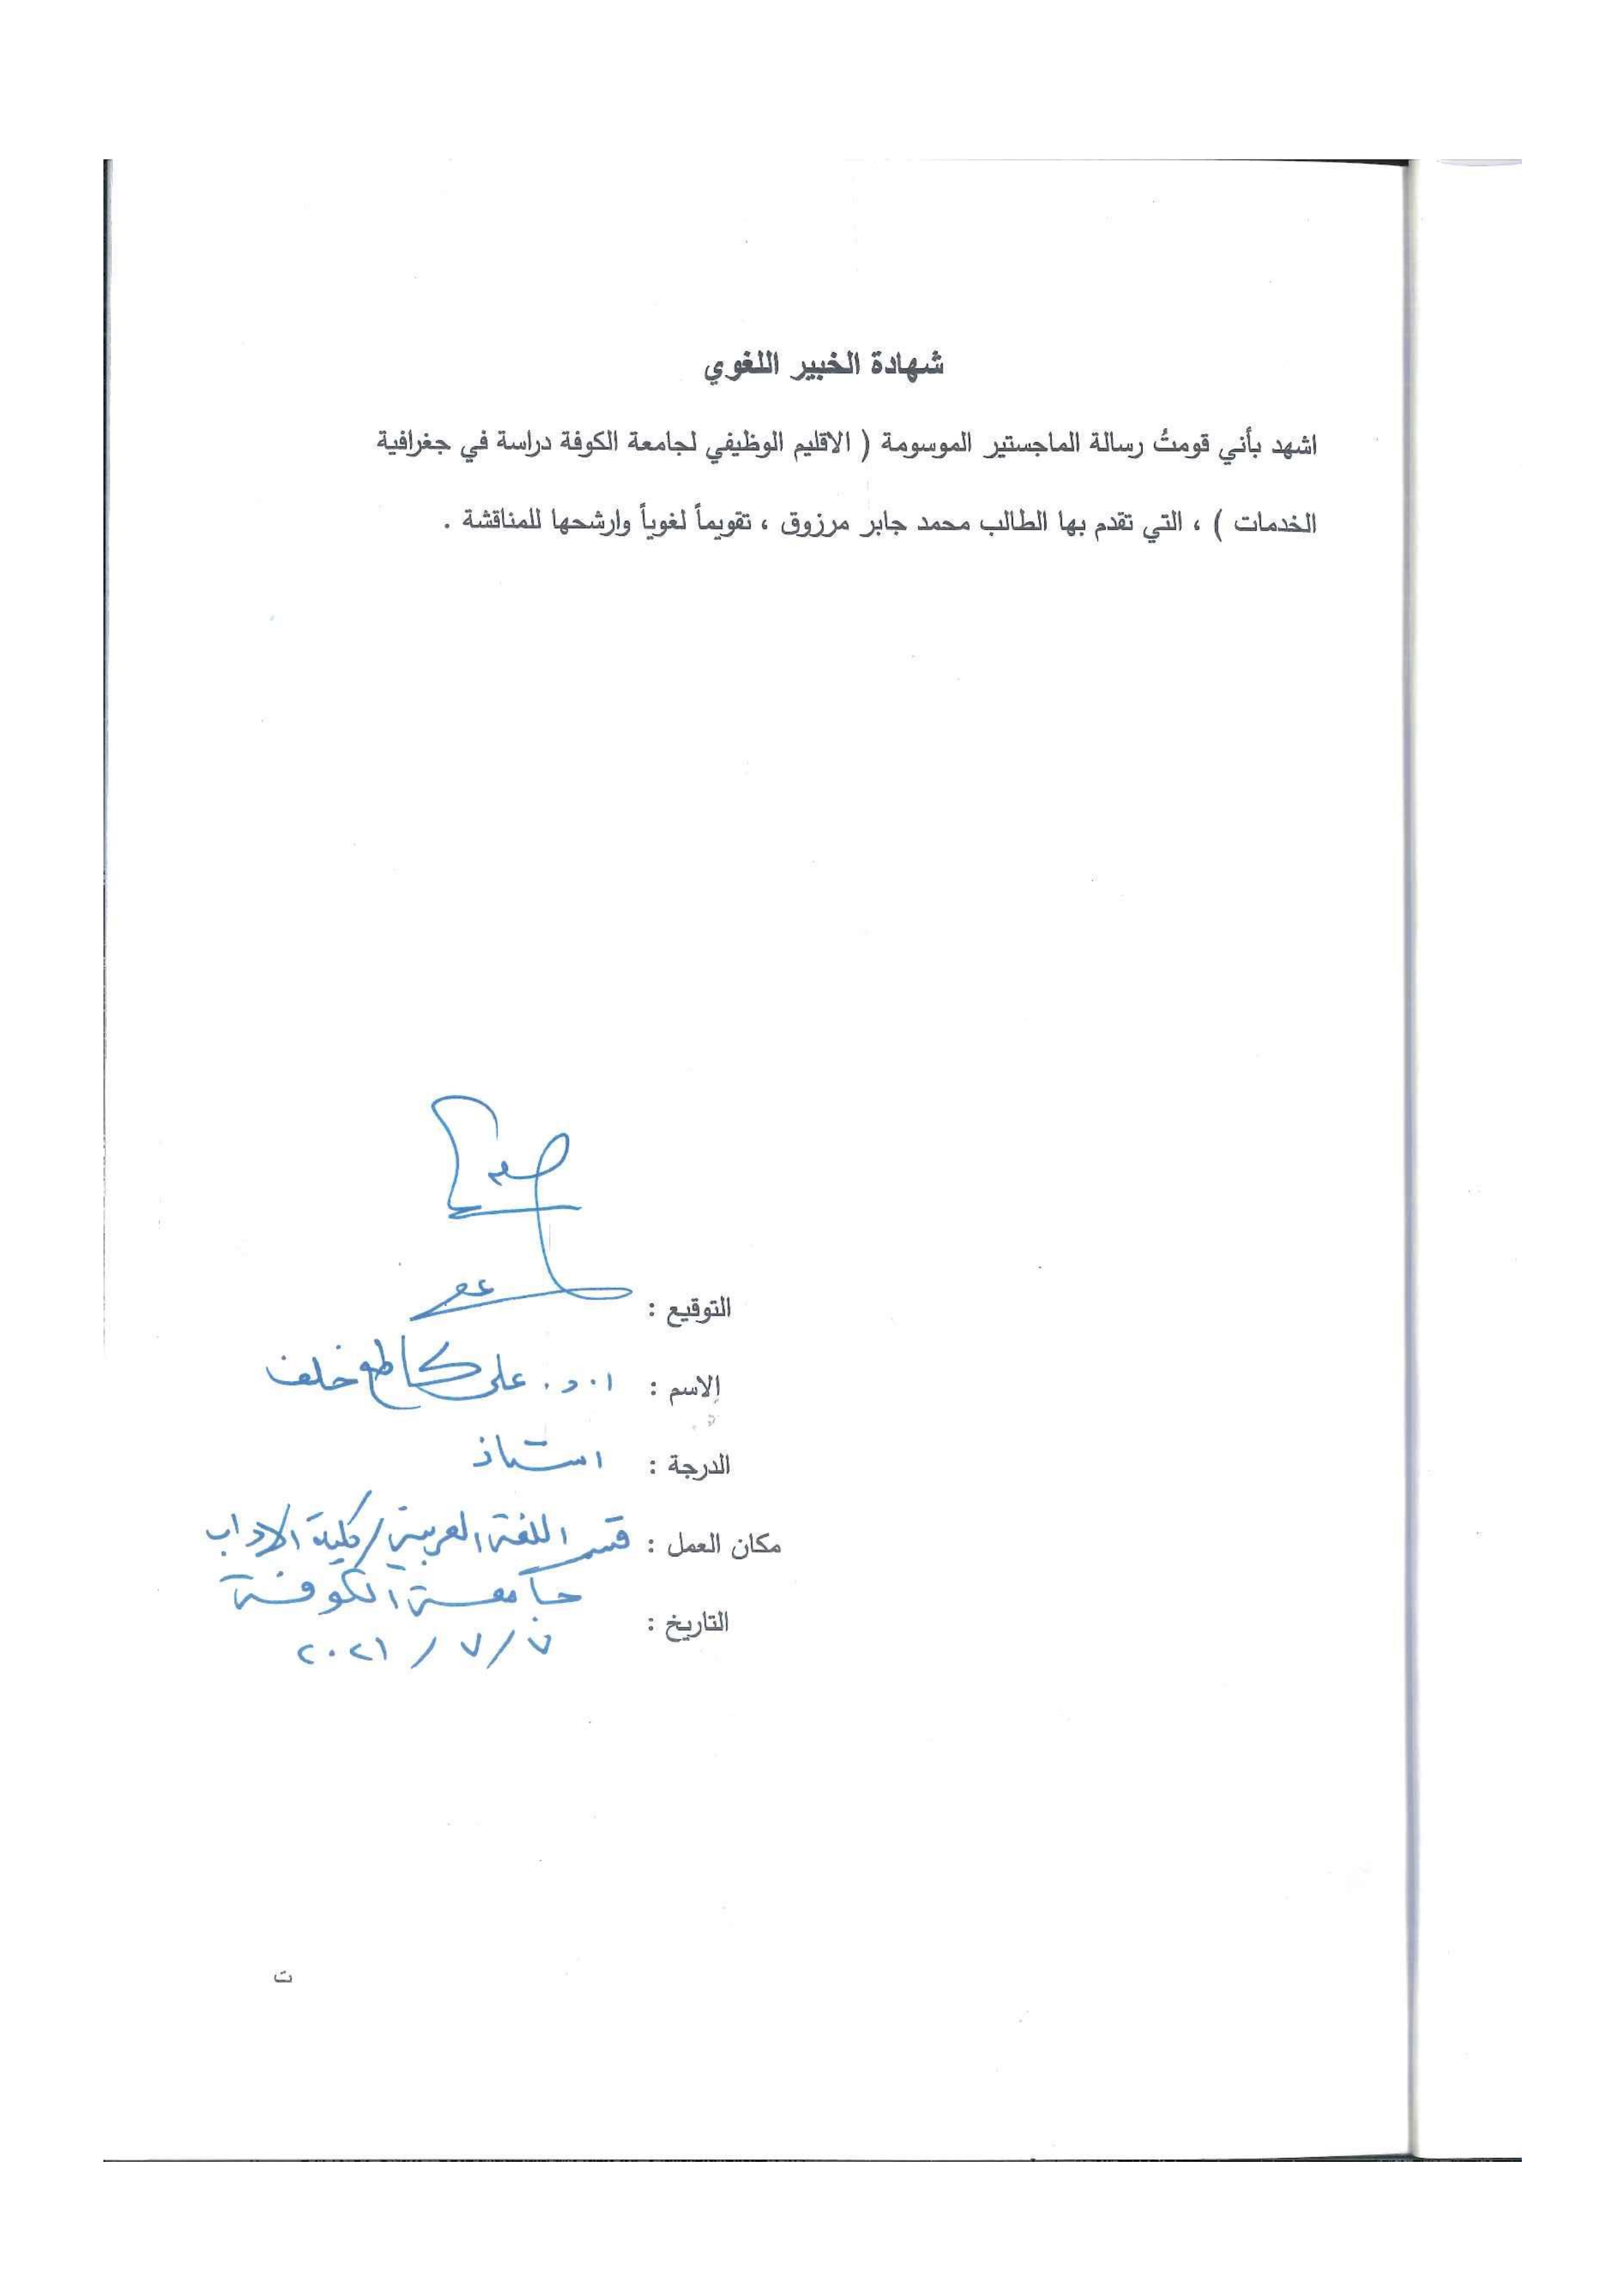 شهادة الخبير اللغوي
اشهد بأني قومتُ رسالة الماجستير الموسومة ( الاقليم الوظيفي لجامعة الكوفة دراسة في جغرافية
الخدمات ) ، التي تقدم بها الطالب محمد جابر مرزوق ، تقويماً لغوياً وارشحها للمناقشة .
التوقيع :
الاسم : ا.د. علي كاطع خلف
الدرجة : استاذ
مكان العمل : قسم اللغة العربية / كلية الاداب
جامعة الكوفة
التاريخ : ٧ / ٧ / ٢٠٢١
ت